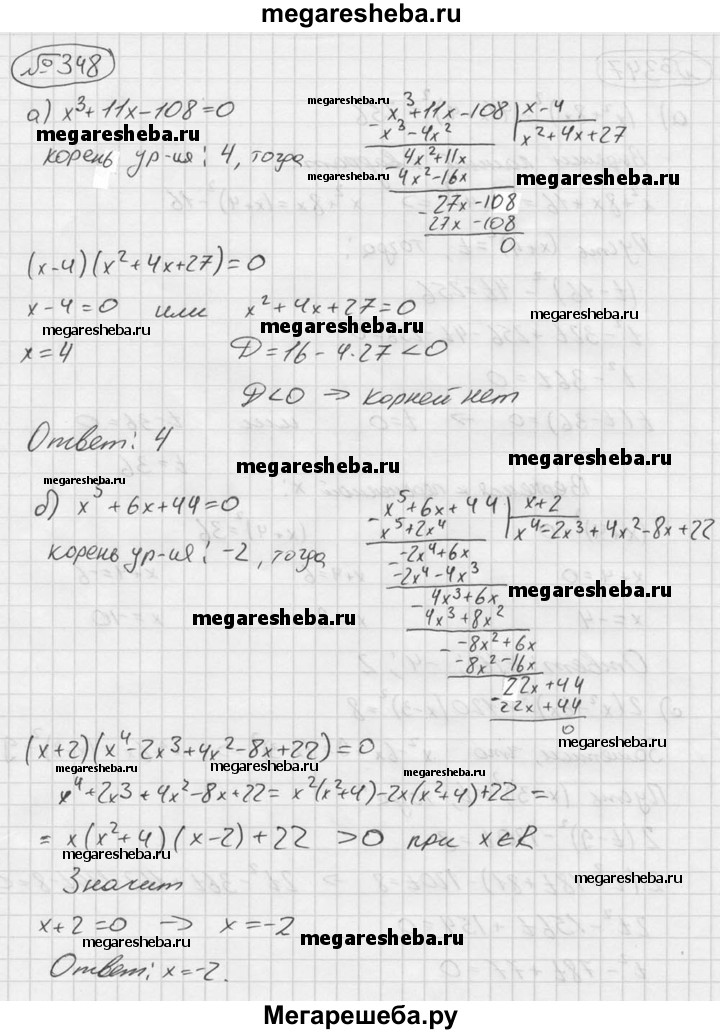 megaresheba.ru
№348
а) x³+11x-108=0
корень ур-ия: 4, тогда
x³+11x-108 | x-4
- x³-4x² x²+4x+27
4x²+11x
- 4x²-16x
27x-108
- 27x-108
0
megaresheba.ru
megaresheba.ru
megaresheba.ru
megaresheba.ru
(x-4)(x²+4x+27)=0
x-4=0 или x²+4x+27=0
megaresheba.ru megaresheba.ru megaresheba.ru
x=4 D=16-4·27<0
D<0 → корней нет
Ответ: 4
megaresheba.ru megaresheba.ru
megaresheba.ru
б) x⁵+6x+44=0
корень ур-ия: -2, тогда
x⁵+6x+44 | x+2
- x⁵+2x⁴ x⁴-2x³+4x²-8x+22
-2x⁴+6x
- -2x⁴-4x³
4x³+6x
- 4x³+8x²
-8x²+6x
- -8x²-16x
22x+44
- 22x+44
0
megaresheba.ru
megaresheba.ru
megaresheba.ru
megaresheba.ru
(x+2)(x⁴-2x³+4x²-8x+22)=0
megaresheba.ru megaresheba.ru
x⁴+2x3+4x²-8x+22= x²(x²+4)-2x(x²+4)+22=
= x(x²+4)(x-2)+22 >0 при x∈R
megaresheba.ru megaresheba.ru
Значит
megaresheba.ru
x+2=0 → x=-2
megaresheba.ru megaresheba.ru
Ответ: x=-2.
megaresheba.ru
Мегарешеба.ру